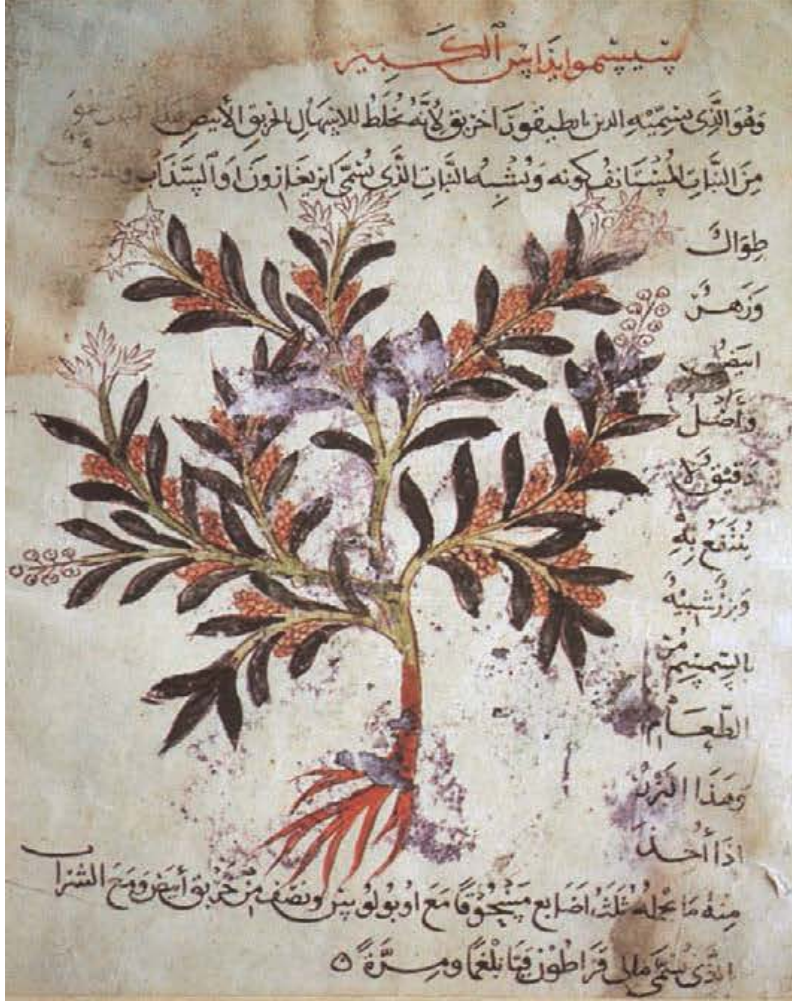 سيسموايداس الكبير
وهو الذي يسميه الدين بانطيقون اخريق لأنه يخلط للاسهال بالخريق الأبيض
من النبات المستانف كونه ويشبه النبات الذي يسمى اريغارون او السذاب وله
طوال
وزهر
ابيض
وأصل
دقيق لا
ينتفع به
وبزر شبيه
بالسمسم من
الطعام
وهذا البزر
اذا أخذ
منه ما تحمله ثلث أصابع مسحوقا مع اوبولويس ونصف من خربق أبيض ومع الشراب
الذي يسمى مالي قراطون قيا بلغما ومرة